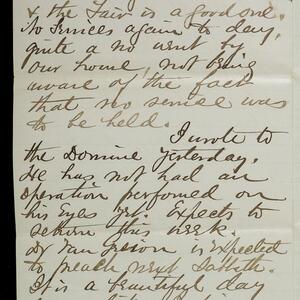 & the Fair is a good one.
No services again to day,
quite a no went by
our house, not being
aware of the fact
that no service was
to be held.
I wrote to
the Domine yesterday.
He has not had an
operation performed on
his Eyes yet. Expects to
return this week.
Dr Van is Expected
to preach next Sabbath.
It is a beautiful day